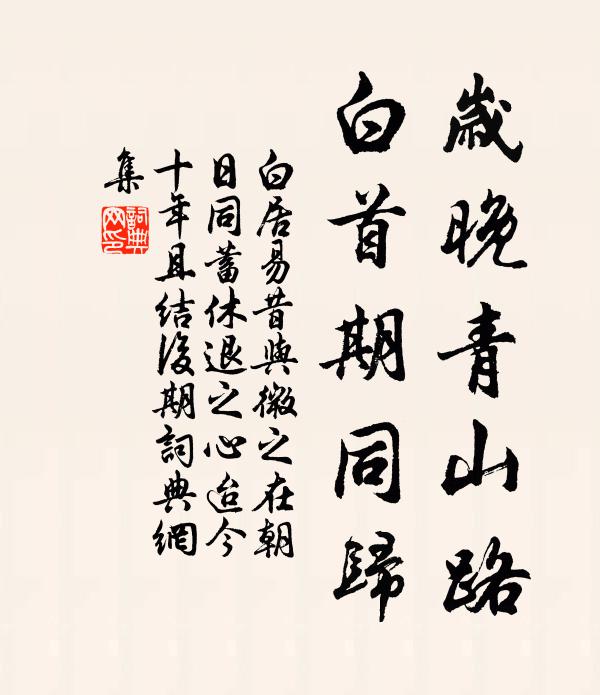 歲晚青山路
白首期同歸
白居易昔與微之在朝
日同蓄休退之心迨今
十年且結後期詞典網
集
詞典網印